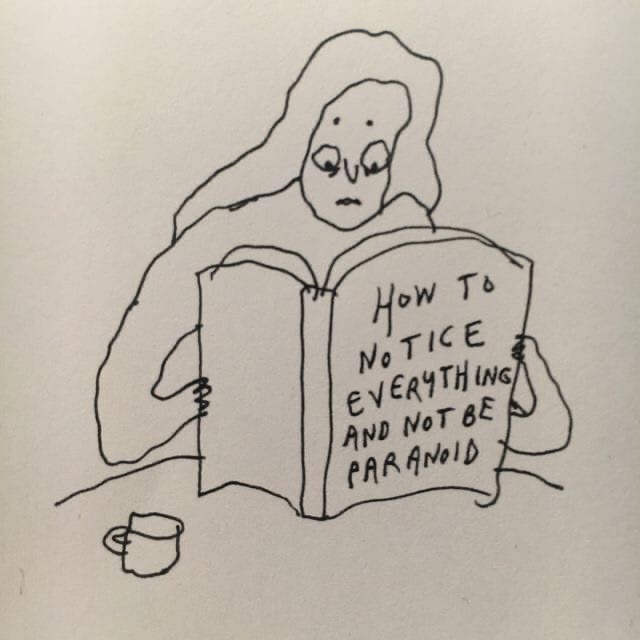 HOW TO
NOTICE
EVERYTHING
AND NOT BE
PARANOID